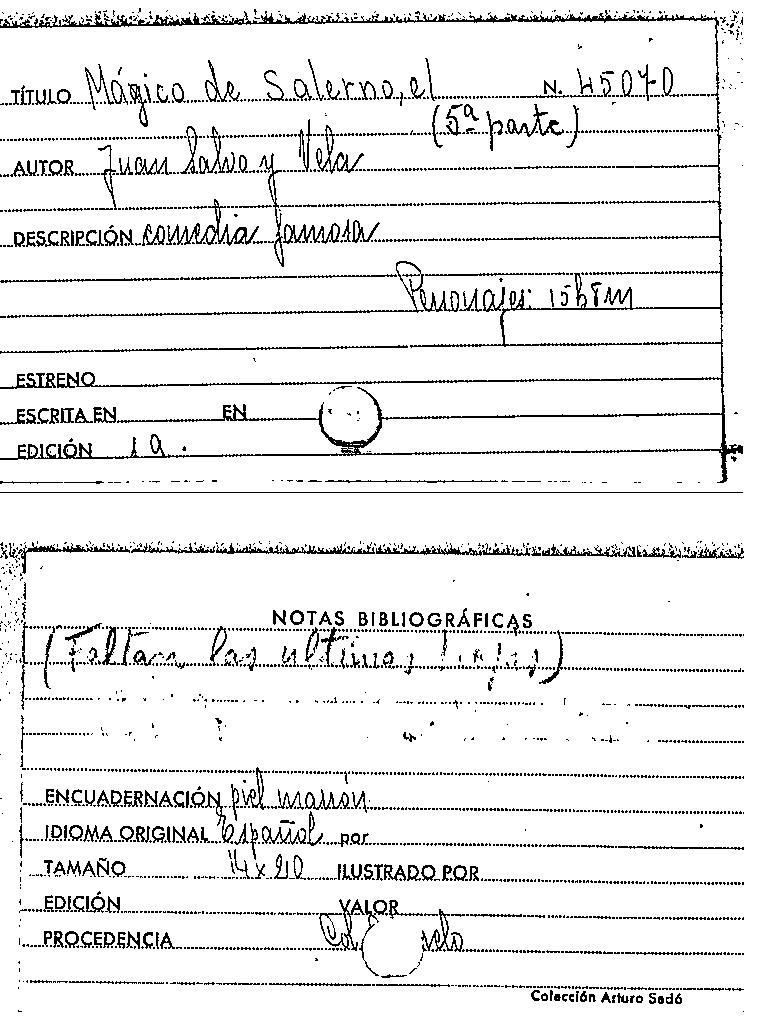 TÍTULO Mágico de Salerno, el N. 45070
(5ª parte)
AUTOR Juan Salvo y Vela
DESCRIPCIÓN comedia famosa
Personajes: 15h 8m
ESTRENO
ESCRITA EN EN
EDICIÓN 1a.
NOTAS BIBLIOGRÁFICAS
(Faltan las ultimas hojas)
ENCUADERNACIÓN piel marrón
IDIOMA ORIGINAL Español por
TAMAÑO 14 x 20 ILUSTRADO POR
EDICIÓN VALOR
PROCEDENCIA Col.
Colección Arturo Sedó